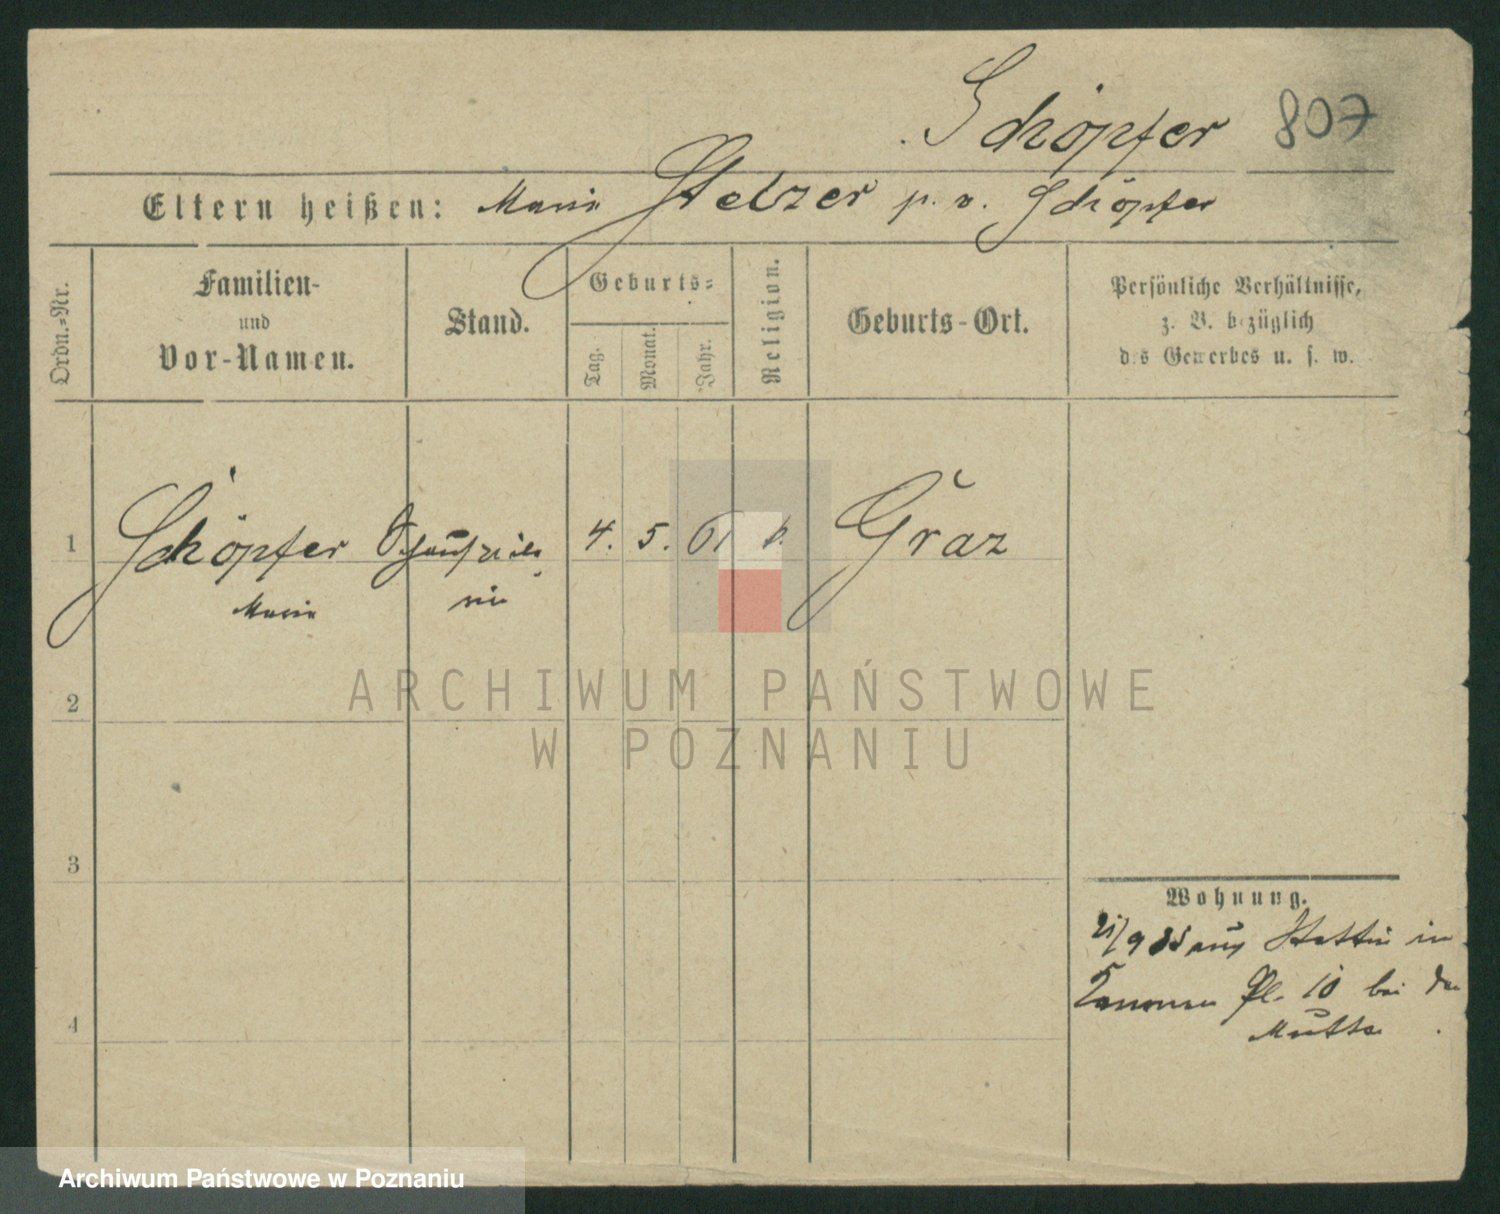 Schöpfer 807
Eltern heißen: Maria Stelzer p. v. Schöpfer
Ordn.=Nr.
Familien-
und
Vor-Namen.
Stand.
Geburts=
Tag.
Monat.
Jahr.
Religion.
Geburts-Ort.
Persönliche Verhältnisse,
z. B. bezüglich
des Gewerbes u. s. w.
1 Schöpfer Schauspiele 4. 5. 61 k. Graz
Maria rin
ARCHIWUM PAŃSTWOWE
W POZNANIU
2
3
4
Wohnung.
21/9 85 aus Stettin in
Pl. 10 bei der
Mutter
Archiwum Państwowe w Poznaniu